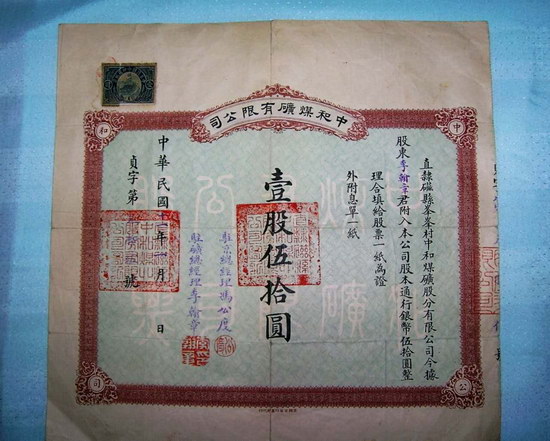 中和煤礦有限公司
中
和
公
司
直隸磁縣峯峯村中和煤礦股分有限公司今據
股東李翰章君附入本公司股本通行銀幣伍拾圓整
理合填給股票一紙為證
外附息單一紙
壹股伍拾圓
駐京總經理馮公度
駐礦總經理李翰章
中華民國十年月日
貞字第號